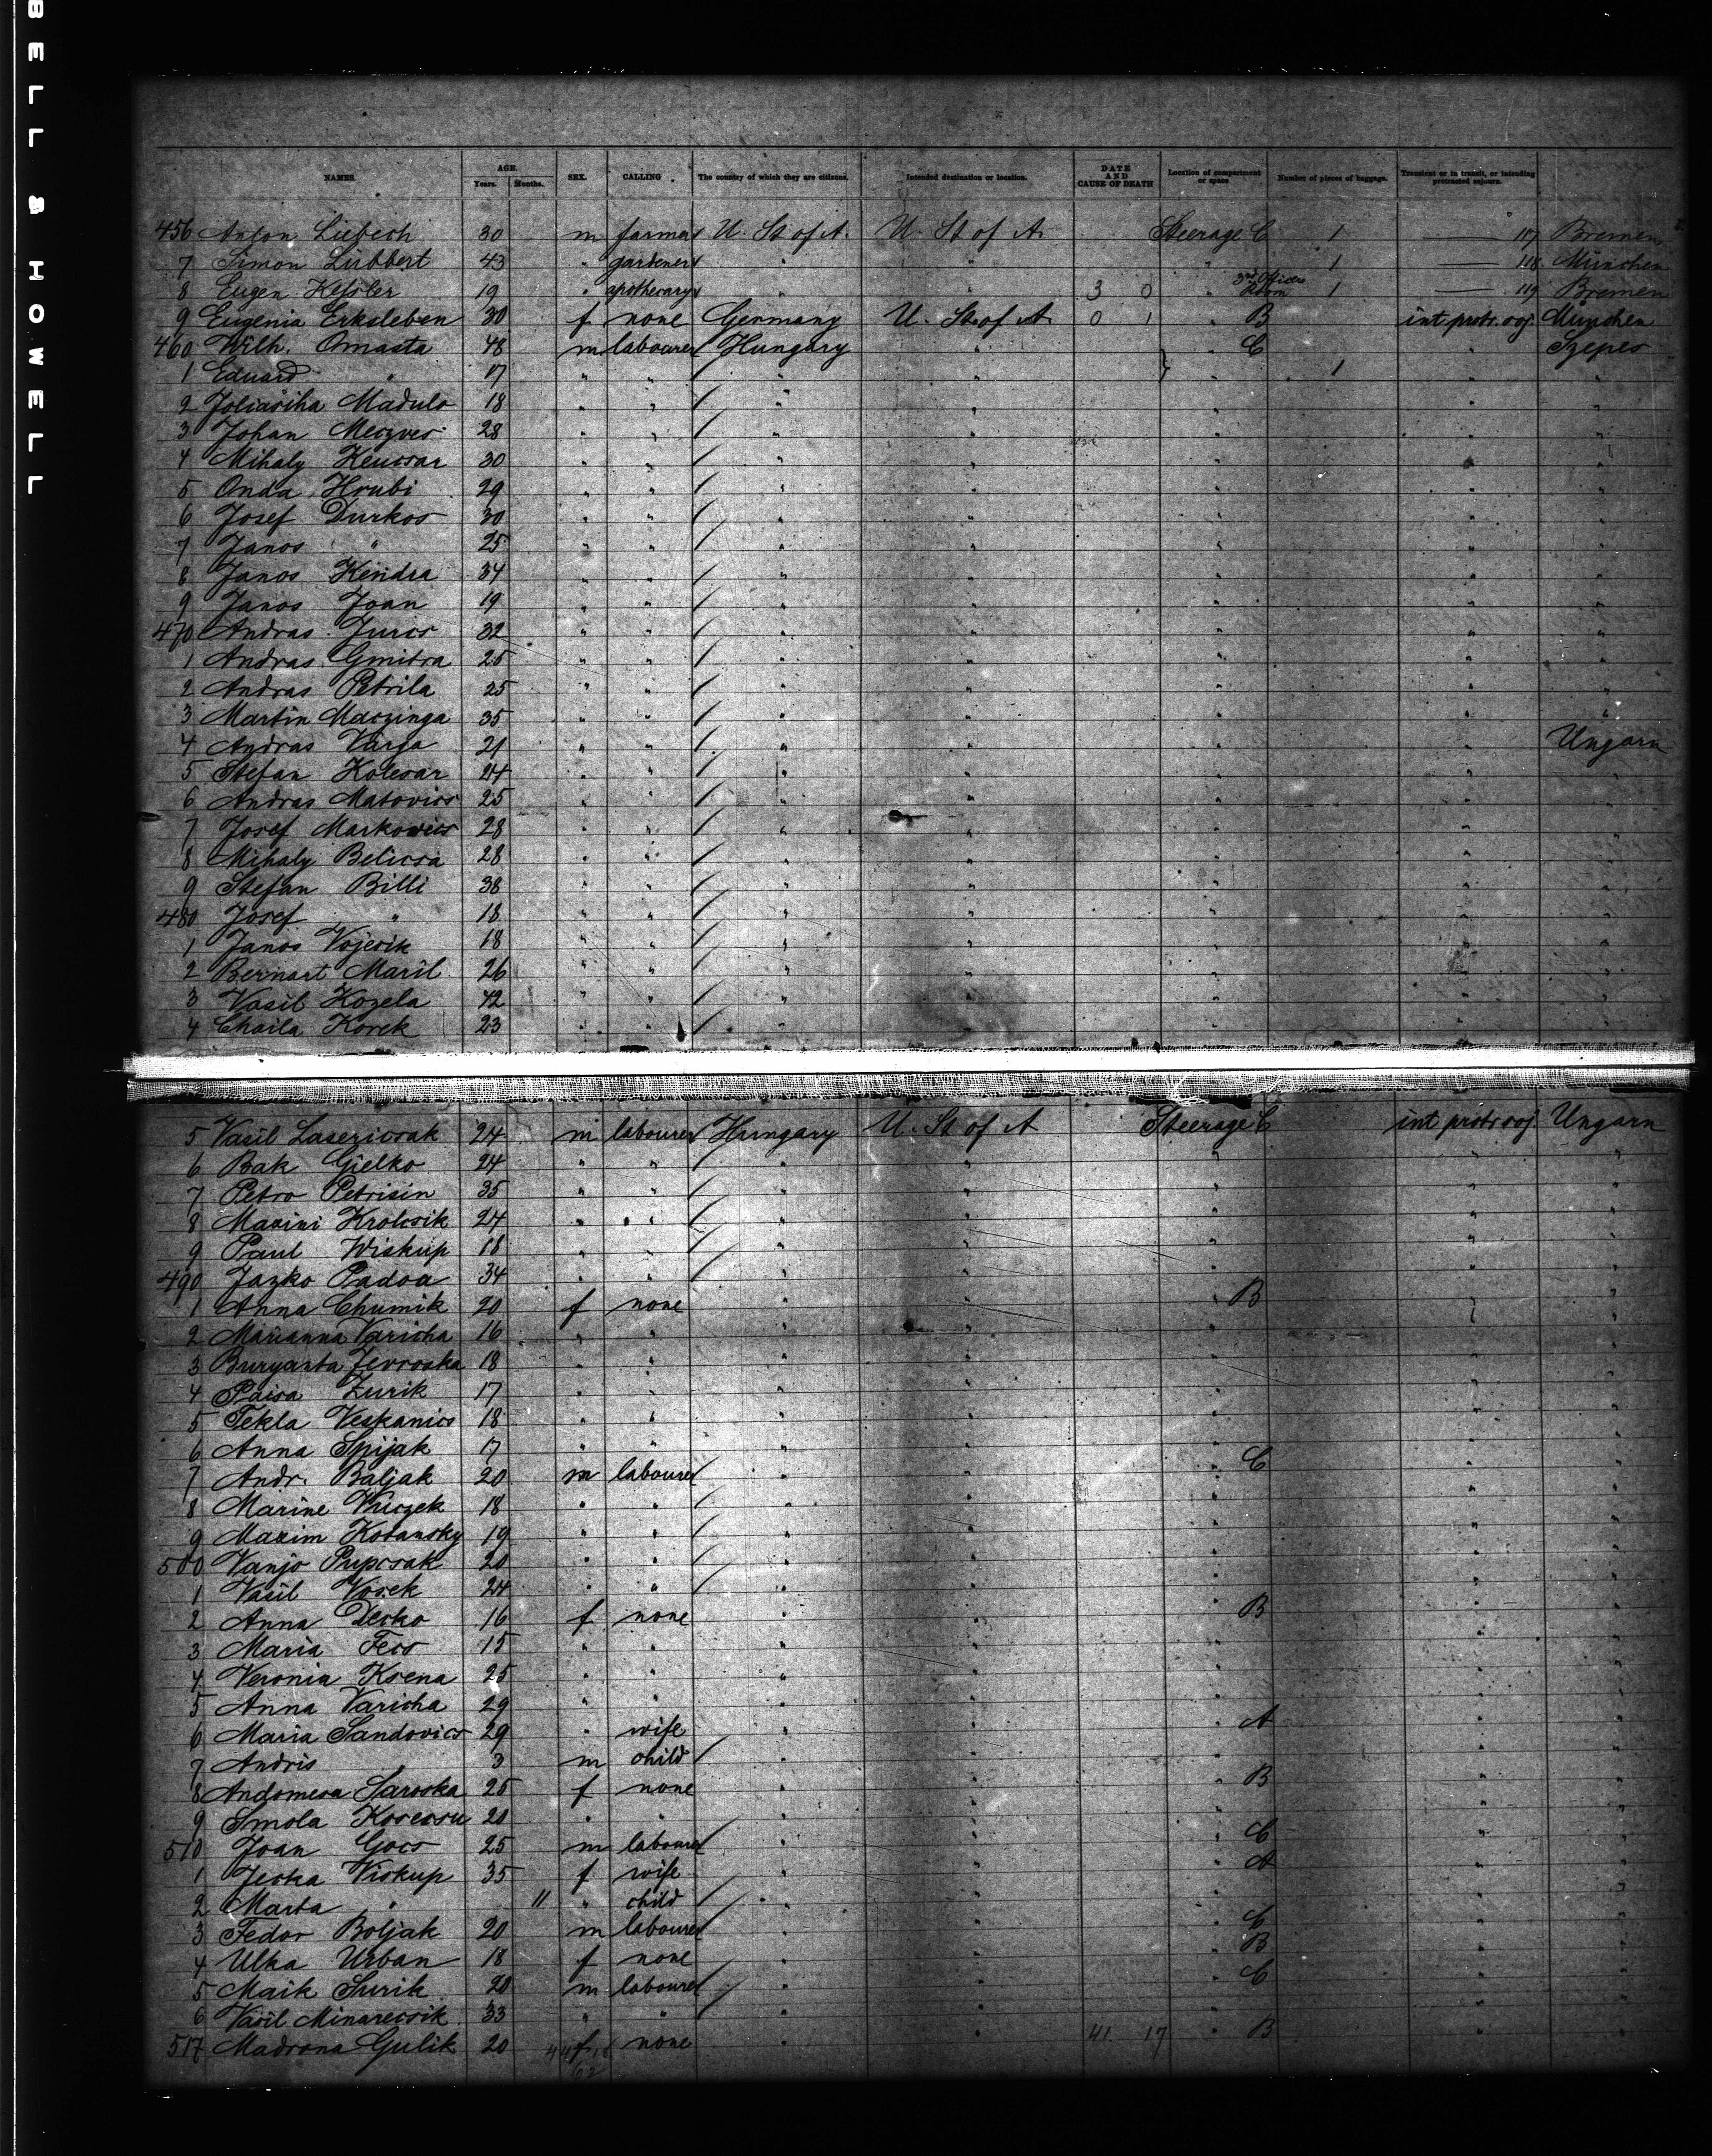 BELL & HOWELL
NAMES. AGE. Years. Months. SEX. CALLING The country of which they are citizens. Intended destination or location. DATE AND CAUSE OF DEATH Location of compartment or space. Number of pieces of baggage. Transient or in transit, or intending protracted sojourn.
456 Anton Liebech 30 m farmer U. St of A. U. St of A. Steerage C 1 — 117 Bremen
7 Simon Lübbert 43 " gardener " " " 1 — 118 München
8 Eugen Kessler 19 " apothecary " " 3 0 " 3rd Offices Room 1 — 119 Bremen
9 Eugenia Erksleben 30 f none Germany U. St of A 0 1 " B int protr. soj. München
460 Wilh. Omasta 48 m labourer Hungary " " C " Szepes
1 Eduard " 17 " " " " " 1 " "
2 Joliasiha Madulo 18 " " " " " " "
3 Johan Meczves 28 " " " " " " "
4 Mihaly Keucsar 30 " " " " " " "
5 Onda Hrubi 29 " " " " " " "
6 Josef Durkos 30 " " " " " " "
7 Janos " 25 " " " " " " "
8 Janos Kendra 34 " " " " " " "
9 Janos Joan 19 " " " " " " "
470 Andras Jurcs 32 " " " " " " "
1 Andras Gmitra 25 " " " " " "
2 Andras Petrila 25 " " " " " " "
3 Martin Maczinga 35 " " " " " " "
4 Andras Varga 21 " " " " " " Ungarn
5 Stefan Kolesar 24 " " " " " " "
6 Andras Matovics 25 " " " " " "
7 Josef Markowics 28 " " " " " " "
8 Mihaly Belicsa 28 " " " " " " "
9 Stefan Billi 38 " " " " " " "
480 Josef " 18 " " " " " " "
1 Janos Vojcsik 18 " " " " " " "
2 Bernart Maril 26 " " " " " " "
3 Vasil Kozela 42 " " " " " " "
4 Chaila Korek 23 " " " " " " "
5 Vasil Lasericsak 24 m labourer Hungary U. St of A Steerage C int protr soj. Ungarn
6 Bak Gielko 24 " " " " " " "
7 Petro Petrisin 35 " " " " " " "
8 Maxini Krolcsik 24 " " " " " " "
9 Paul Wiskup 18 " " " " " " "
490 Jazko Padoa 34 " " " " " " "
1 Anna Chumik 20 f none " " " B " "
2 Marianna Varicha 16 " " " " " " "
3 Buryanta Jevroska 18 " " " " " " "
4 Paisa Zurik 17 " " " " " " "
5 Tekla Veskanics 18 " " " " " " "
6 Anna Spijak 17 " " " " " " "
7 Andr. Baljak 20 m labourer " " " C " "
8 Marine Vuczek 18 " " " " " " "
9 Maxim Kotansky 19 " " " " " " "
500 Vanjo Pupcsak 20 " " " " " " "
1 Vasil Vosek 24 " " " " " " "
2 Anna Decko 16 f none " " " B " "
3 Maria Fecs 15 " " " " " " "
4 Veronia Ksena 25 " " " " " " "
5 Anna Varicha 29 " " " " " " "
6 Maria Sandovics 29 " wife " " " A " "
7 Andris " 3 m child " " " " "
8 Andomesa Saroska 25 f none " " " B " "
9 Smola Korecsu 20 " " " " " " "
510 Joan Gocs 25 m labourer " " " C " "
1 Jecka Viskup 35 f wife " " " A " "
2 Marta " 11 " child " " " " "
3 Fedor Boljak 20 m labourer " " " C " "
4 Ulka Urban 18 f none " " " B " "
5 Maik Surik 20 m labourer " " " C " "
6 Vasil Minarecsik 33 " " " " " " "
517 Madrona Gulik 20 f none " " 41 17 " B " "